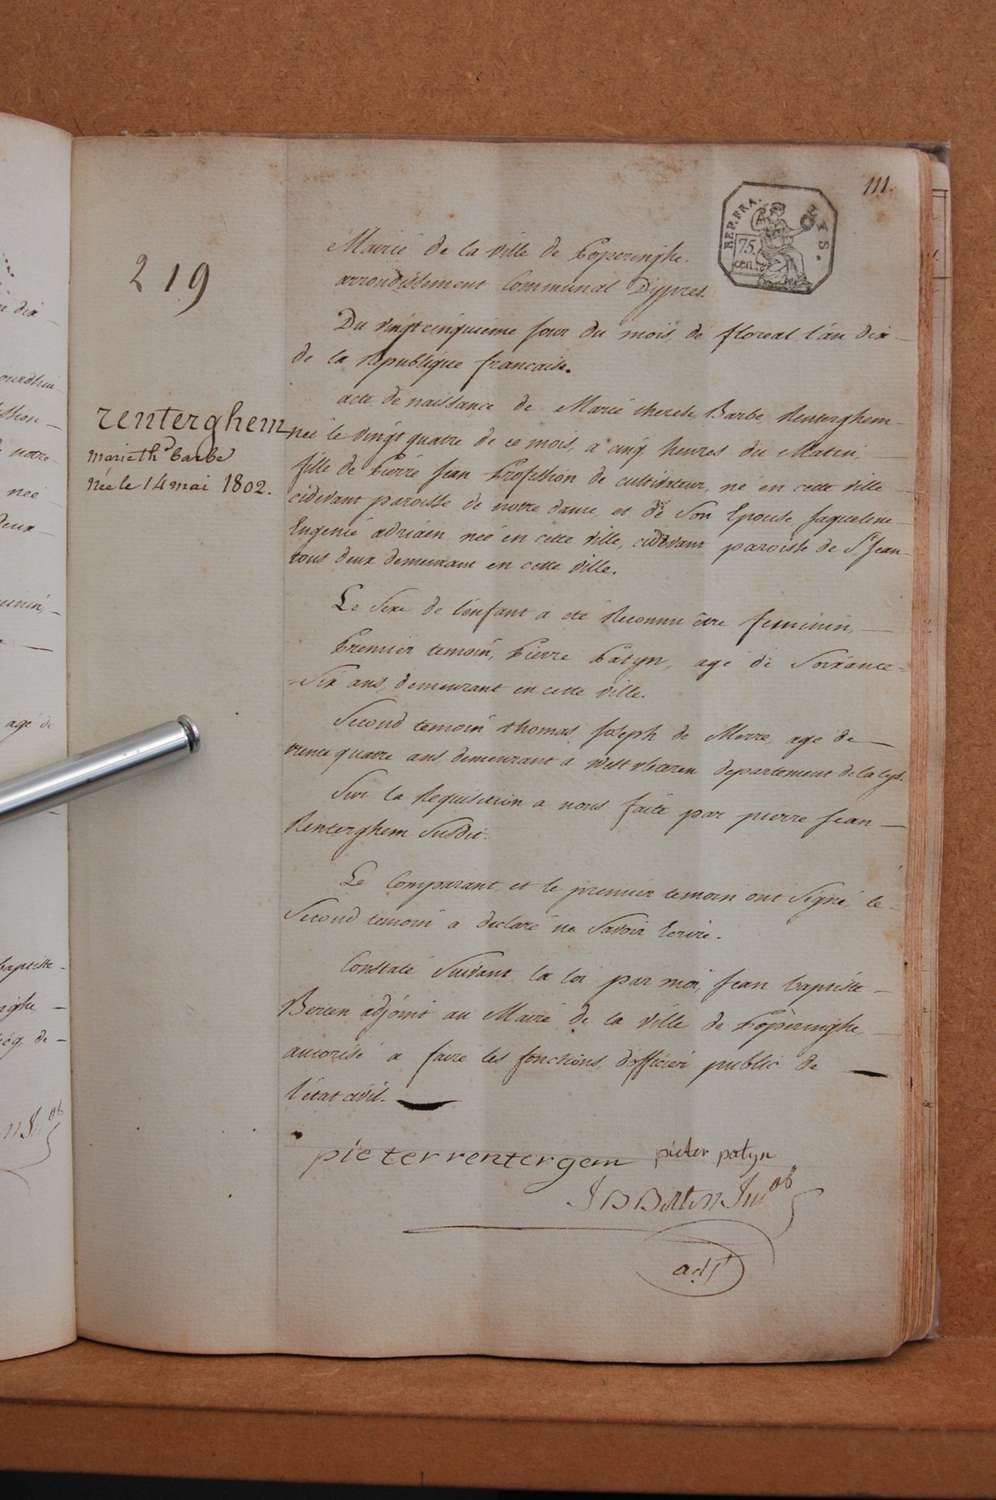 111.
REP. FRA.
75.
cen.
219
Mairie de la ville de Poperinghe.
arrondissement Communal D'ypres.
Du vingt cinquieme jour du mois de floreal l'an dix
de la republique francaise.
renterghem
marie thd barbe
née le 14 mai 1802.
acte de naissance de Marie therese Barbe Renterghem
neé le vingt quatre de ce mois, a cinq heures du Matin,
fille de Pierre Jean Profession de cultivateur, né en cette ville
cidevant paroisse de notre dame, et de Son Epouse Jaqueline
Eugenie adriaen neé en cette ville, cidevant paroisse de St Jean
tous deux demeurant en cette ville.
Le Sexe de l'enfant a eté Reconnu être feminin,
Premier temoin, Pierre Patyn, agé de Soixante-
Six ans, demeurant en cette ville.
Second temoin thomas Joseph de Merre agé de
trente quatre ans demeurant a westvleteren departement de la Lys.
Sur la Requisition a nous faite par pierre Jean
Renterghem Susdit.
Le Comparant et le premier temoin ont Signé le
Second temoin a declaré ne Savoir Ecrire.
Constaté Suivant la loi par moi Jean baptiste
adjoint au Maire de la ville de Poperinghe
autorisé a faire les fonctions d'officier public de
l'etat civil.
pieter rentergem pieter patyn
adjt